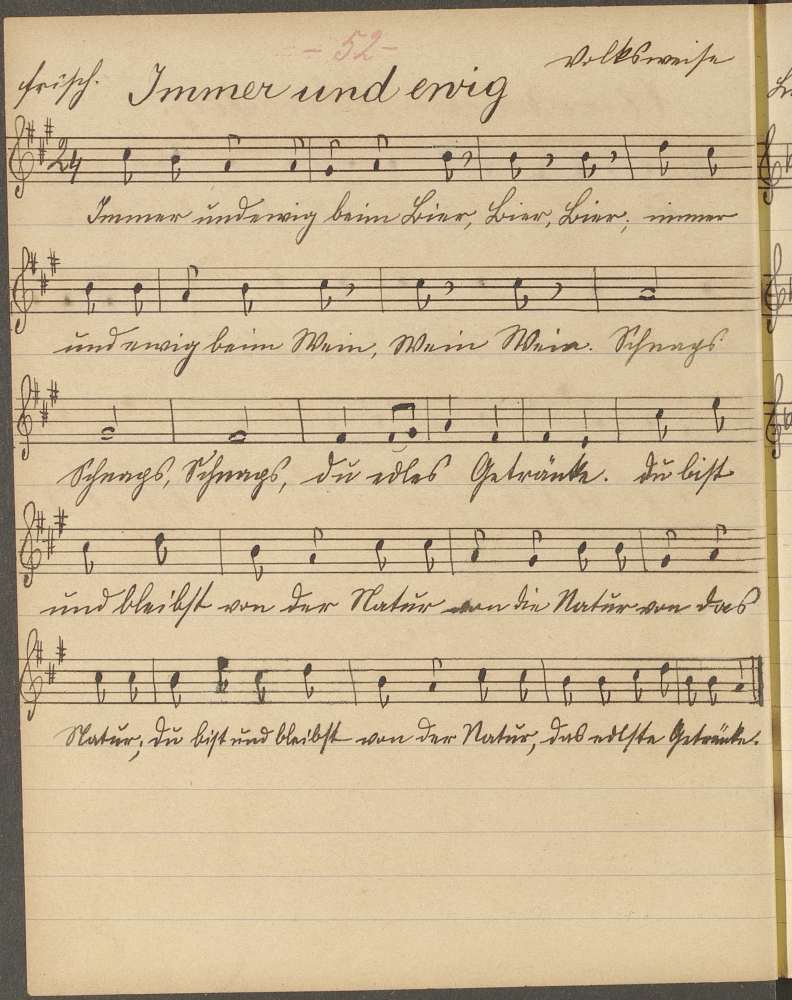 - 52 -
Volksweise
frisch. Immer und ewig
24
Immer und ewig beim Bier, Bier, Bier; immer
und ewig beim Wein, Wein Wein. Schnaps
Schnaps, Schnaps, du edles Getränke. du bist
und bleibst von der Natur von die Natur von das
Natur; du bist und bleibst von der Natur, das edlste Getränke.